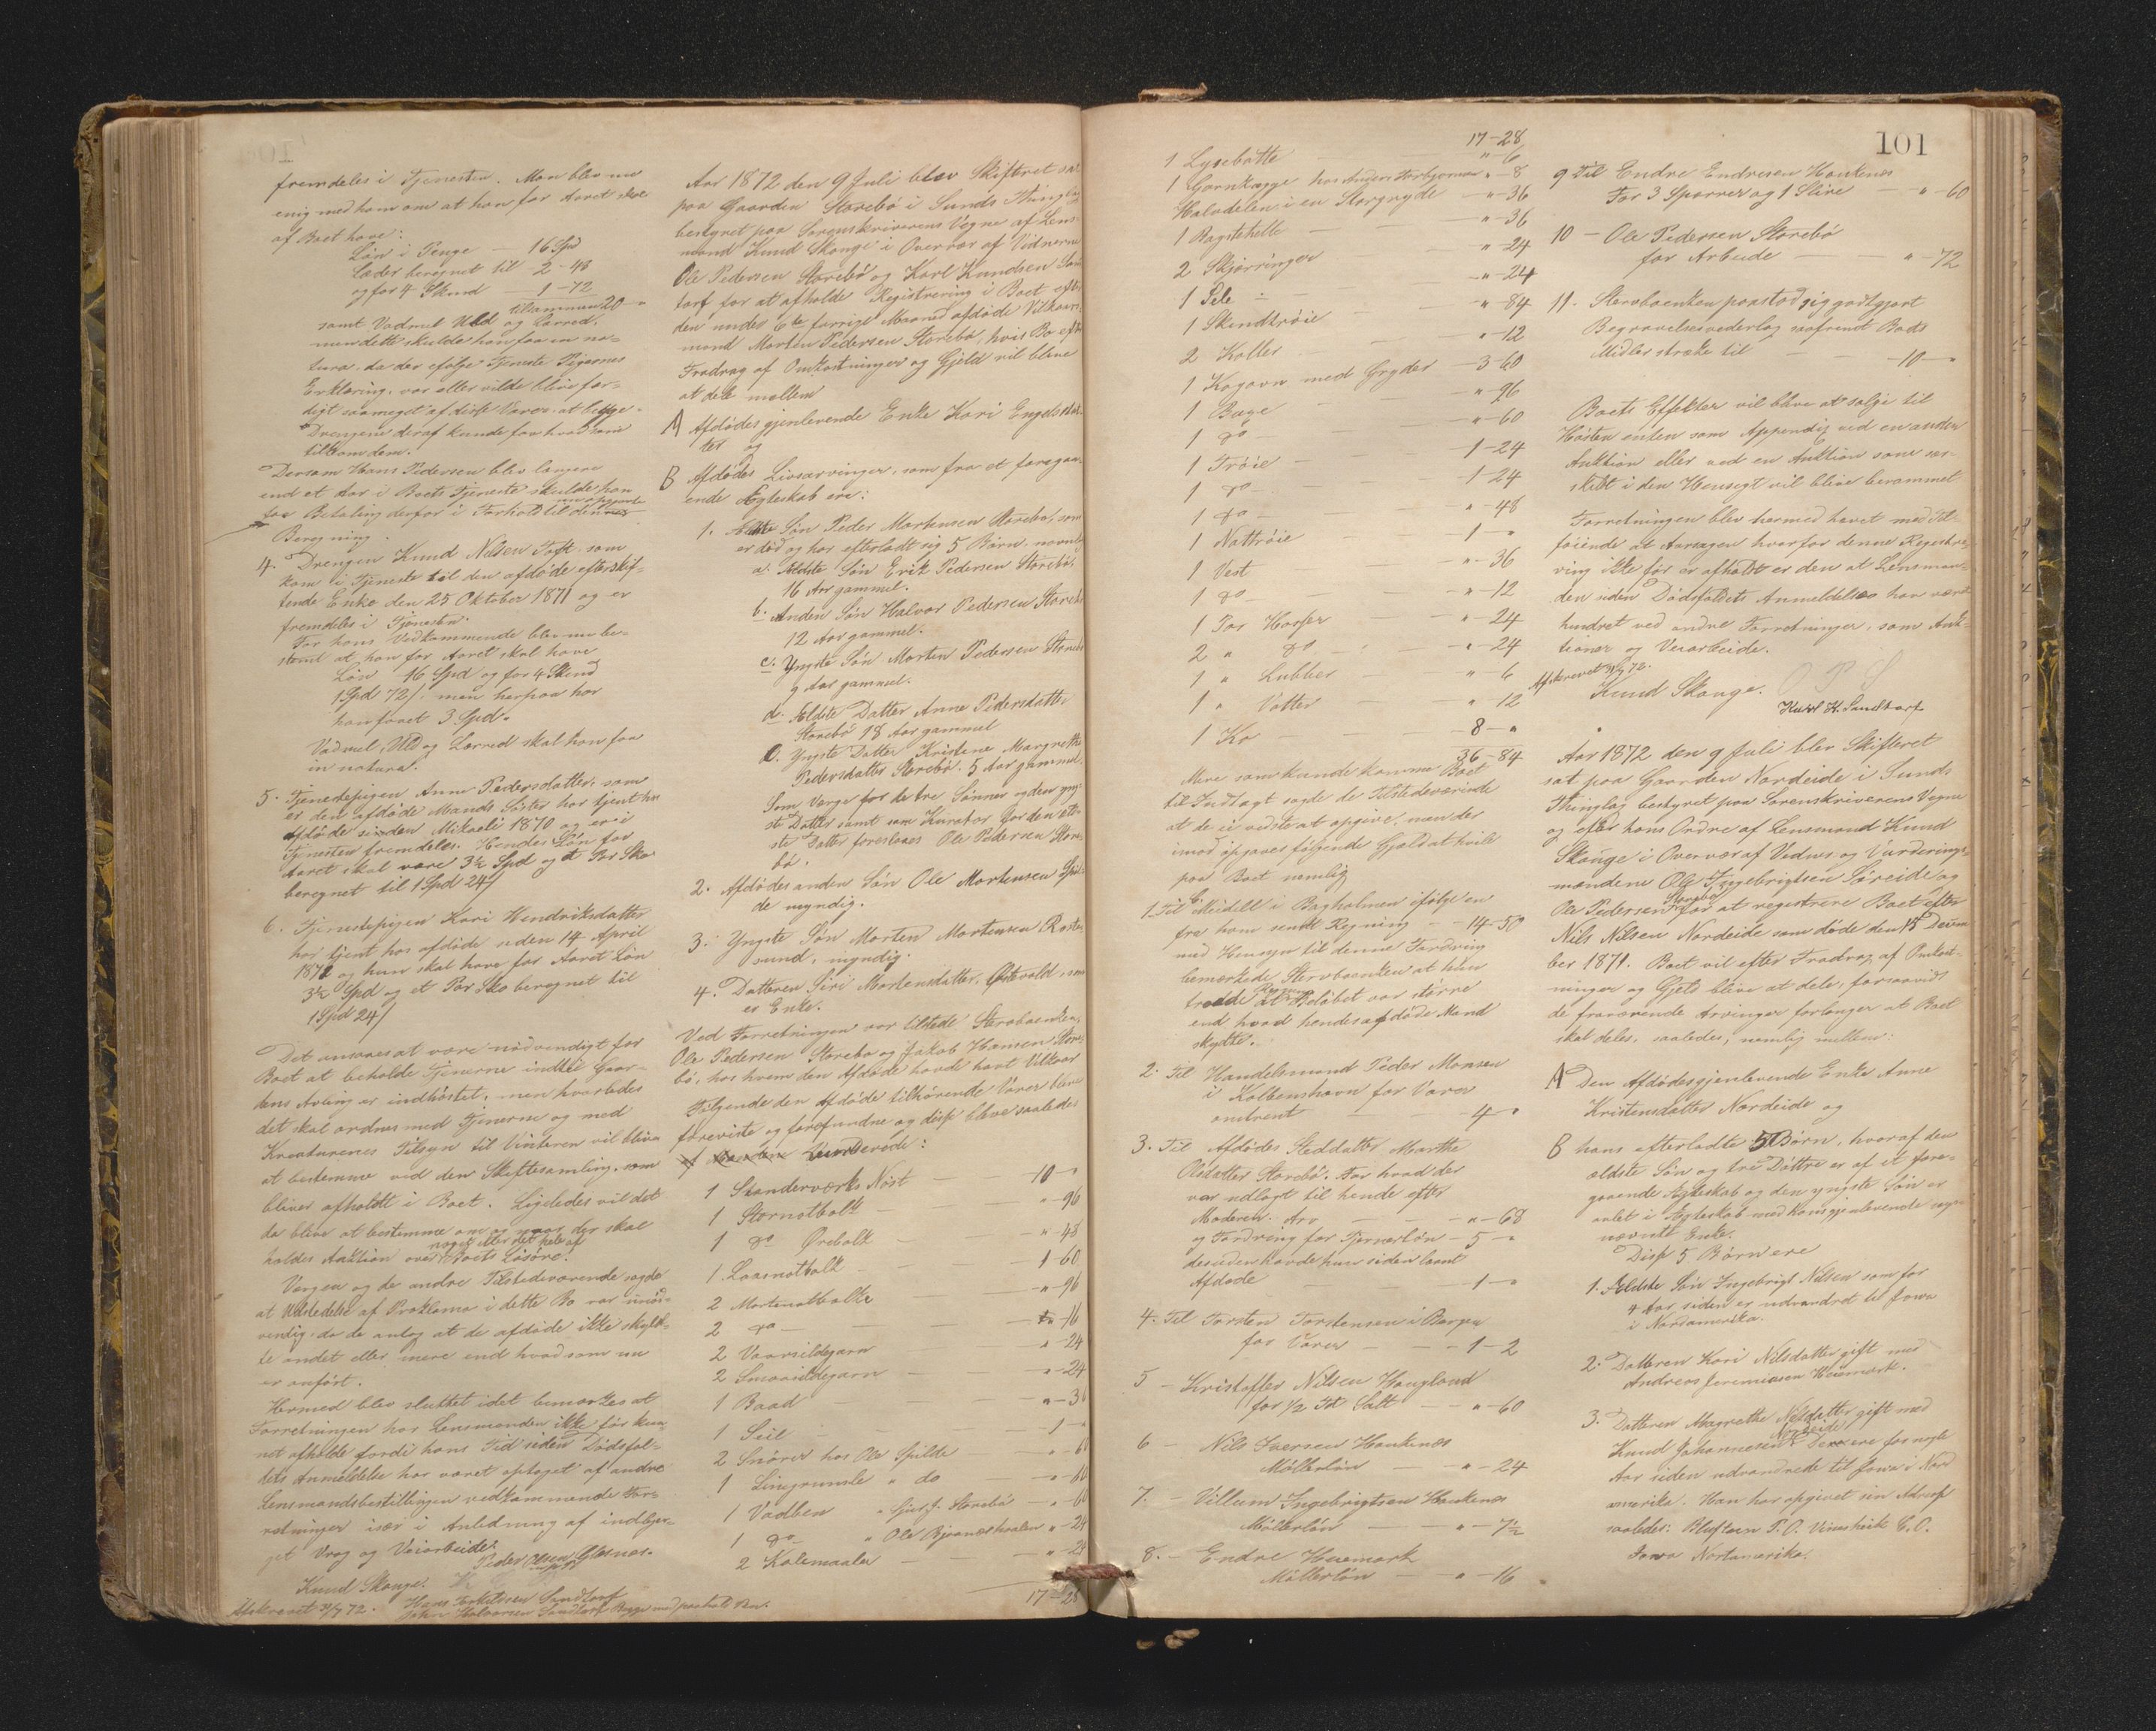 fremdeles i Tjenesten. Man blev nu
enig med ham om at han for Aaret skal
af Boet have:
Løn i Penge — 16 Spd
Læder beregnet til 2-48
og for 4 Skind 1-72
tilsammen 20 - "
samt Vadmel Uld og Lærred,
men dette skulde han faa in na-
tura, da der efølge Tjeneste Pigernes
Erklæring, var eller vilde blive fær-
digt saameget af disse Varer at begge
Drengene deraf kunde faa hvad som
tilkom dem.
Dersom Hans Pedersen blev længere
end et Aar i Boets Tjeneste skulde han
faa Betaling derfor i Forhold til denne
Beregning.
4. Drengen Knud Nilsen Toft som
kom i Tjeneste til den afdøde efterskif-
tende Enke den 25 Oktober 1871 og er
fremdeles i Tjenesten.
For hans Vedkommende blev nu be-
stemt at han for Aaret skal have
Løn 16 Spd og for 4 Skind
1 Spd 72 /: men herpaa har
han faaet 3 Spd.
Vadmel, Uld og Lærred skal han faa
in natura.
5. Tjenestepigen Anne Pedersdatter, som
er den afdøde Mands Søster har tjent hos
Afdøde siden Mikaeli 1870 og er i
Tjenesten fremdeles. Hendes Løn for
Aaret skal være 3½ Spd og et Par Sko
beregnet til 1 Spd 24 /
6. Tjenestepigen Kari Hendriksdatter
har tjent hos afdøde siden 14 April
1872 og hun skal have for Aaret Løn
3½ Spd og et Par Sko beregnet til
1 Spd 24 /
Det ansaaes at være nødvendigt for
Boet at beholde Tjenerne indtil Gaar-
dens Avling er indhøstet, men hvorledes
det skal ordnes med Tjenerne og med
Kreaturenes Tilsyn til Vinteren vil blive
at bestemme ved den Skiftesamling, som
bliver afholdt i Boet. Ligeledes vil det
da blive at bestemme om og naar der skal
holdes Auktion over noget eller det hele af Boets Løsøre.
Vergen og de andre Tilstedeværende sagde
at Udstedelse af Proklama i dette Bo var unød-
vendig, da de antog at de afdøde ikke skyld-
te andet eller mere end hvad som nu
er anført.
Hermed blev sluttet idet bemærkes at
Forretningen har Lensmanden ikke før kun-
net afholde fordi hans Tid siden Dødsfal-
dets Anmeldelse har været optaget af andre
Lensmandsbestillingen vedkommende For-
retninger især i Anledning af indbjer-
get Vrag og Veiarbeide.
Peder Olsen Glesnæs.
Knud Skauge.
Hans Eriksen Sandtorf
Afskrevet 31/7 72. John Halvorsen Sandtorf Begge med paaholdt Pen.
Aar 1872 den 9 Juli blev Skifteret sat
paa Gaarden Storebø i Sunds Thinglag
bestyret paa Sorenskriverens Vegne af Lens-
mand Knud Skauge i Overvær af Vidnerne
Ole Pedersen Storebø og Karl Knudsen Sand
torf for at afholde Registrering i Boet efter
den under 6te forrige Maaned afdøde Vilkaars-
mand Morten Pedersen Storebø, hvis Bo efter
Fradrag af Omkostninger og Gjeld vil blive
at dele mellem
A Afdødes gjenlevende Enke Kari Engelsdat-
ter og
B Afdødes Livsarvinger, som fra et foregaa-
ende Ægteskab ere:
1. Ældste Søn Peder Mortensen Storebø, som
er død og har efterladt sig 5 Børn, nævnlig
a. Ældste Søn Erik Pedersen Storebø,
16 Aar gammel.
b. Anden Søn Halvor Pedersen Storebø
12 Aar gammel.
c. Yngste Søn Morten Pedersen Storebø
9 Aar gammel.
d. Ældste Datter Anne Pedersdatter
Storebø 18 Aar gammel
e. Yngste Datter Kristine Margrethe
Pedersdatter Storebø. 5 Aar gammel.
Som Værge for de tre Sønner og den yng-
ste Datter samt som Kurator for den æld-
ste Datter foreslaaes Ole Pedersen Store-
bø.
2. Afdødes anden Søn Ole Mortensen Spil-
de myndig.
3. Yngste Søn Morten Mortensen Rostø-
sund, myndig.
4. Datteren Siri Mortensdatter, Østevold, som
er Enke.
Ved Forretningen var tilstede Stervboenken,
Ole Pedersen Storebø og Jakob Hansen Store-
bø, hos hvem den Afdøde havde havt Vilkaar
Følgende den Afdøde tilhørende Varer bleve
foreviste og forefundne og disse bleve saaledes
vurderede:
1 Standerværks Nøst — 10 - "
1 Stornotbolk — " - 96
1 do Ørebolk — " - 48
1. Laasnotbolk — 1 - 60
2 Mortenotbolke — " - 96
2 do — " - 16
2 Vaarsildegarn " - 24
2 Smaasildegarn — " - 24
1 Baad — " - 36
1 Seil — 1 - "
2 Snører hos Ole Spilde " - 60
1 Linegrumle " do " - 60
1 Vadben " Sjur J. Storebø — " - 60
1 do " Ole Bjørnesholen " - 24
2 Kolemaaler — " - 24
17 - 28
101
17-28
1 Lysebøtte — " - 6
1 Garnkagge hos Anders Torbjørnsen " - 8
Halvdelen i en Storgryde — " - 36
1 Bagstehelle — " - 36
2 Skjærringer — " - 24
1 Pæle — " - 24
1 Skindtrøie — " - 84
2 Koller — " - 12
1 Kogovn med Gryder — 3-60
1 Buxe — " - 96
1 do — " - 60
1 Trøie — 1-24
1 do — 1-24
1 do — " - 48
1 Nattrøie — 1 - "
1 Vest — " - 36
1 do — " - 12
1 Par Hoser — " - 24
2 " do — " - 24
1 " Lubber — " - 6
1 " Vøtter — " - 12
1 Ko — 8 - "
36-84
Mere som kunde komme Boet
til Indtægt sagde de Tilstedeværende
at de ei vidste at opgive, men der
imod opgaves følgende Gjæld at hvile
paa Boet nemlig
1. Til C. Meidell i Bagholmen ifølge en
fra ham sendt Regning — 14-50
med Hensyn til denne Fordring
bemærkede Stervboenken at hun
troede at Regnings Beløbet var større
end hvad hendes afdøde Mand
skyldte.
2. Til Handelsmand Peder Monsen
i Kolbenshavn for Varer
omtrent — 4 - "
3. Til Afdødes Steddatter Marthe
Olsdatter Storebø. For hvad der
var udlagt til hende efter
Moderen. Arv — " - 68
og Fordring for Tjenerløn — 5 - "
desuden havde hun siden laant
Afdøde — 1 - "
4. Til Torsten Torstensen i Bergen
for Varer — 1-2
5 — Kristoffer Nilsen Haugland
for ½ Td Salt — " - 60
6 — Nils Iversen Haukenes
Møllerløn — " - 24
7. — Villum Ingebrigtsen Haukenes
Møllerløn — " - 7½
8. — Endre Heiemark
Møllerløn — " - 16
9 Til Endre Endresen Haukenes
For 3 Sparrer og 1 Stive — " - 60
10 — Ole Pedersen Storebø
for Arbeide — " - 72
11. Stervboenken paastod sig godtgjort
Begravelsesvederlag saafremt Boets
Midler strække til — 10 - "
Boets Effekter vil blive at sælge til
Høsten enten som Appendix ved en anden
Auktion eller ved en Auktion som sær-
skilt i den Hensigt vil blive berammet
Forretningen blev hermed hævet med Til-
føiende at Aarsagen hvorfor denne Registre-
ring ikke før er afholdt er den at Lensman-
den siden Dødsfaldets Anmeldelse har været
hindret ved andre Forretninger, som Auk-
tioner og Veiarbeide.
Afskrevet 31/7 72.
Knud Skauge. O P S
Karl K. Sandtorf
Aar 1872 den 9 Juli blev Skifteret
sat paa Gaarden Nordeide i Sunds
Thinglag bestyret paa Sorenskriverens Vegne
og efter hans Ordre af Lensmand Knud
Skauge i Overvær af Vidner og Vurderings-
mændene Ole Ingebrigtsen Søreide og
Ole Pedersen Storebø for at registrere Boet efter
Nils Nilsen Nordeide som døde den 15 Decem
ber 1871. Boet vil efter Fradrag af Omkost-
ninger og Gjeld blive at dele, forsaavidt
de fraværende Arvinger forlanger at Boet
skal deles, saaledes, nemlig mellem:
A Den Afdødes gjenlevende Enke Anne
Kristensdatter Nordeide og
B hans efterladte 5 Børn, hvoraf den
ældste Søn og tre Døttre er af et fore-
gaaende Ægteskab og den yngste Søn er
avlet i Ægteskab med hans gjenlevende
nævnte Enke.
Disse 5 Børn ere
1. Ældste Søn Ingebrigt Nilsen som for
4 Aar siden er udvandret til Iowa
i Nordamerika.
2. Datteren Kari Nilsdatter gift med
Andreas Jeremiassen Heiemark.
3. Datteren Magrethe Nilsdatter gift med
Knud Johannesen Nordeide. Denne ere for nogle
Aar siden udvandrede til Iowa i Nord
amerika. Han har opgivet sin Adresse
saaledes: Bluftown P. O. Vinnishiek C. O.
Iowa Nortamerika.